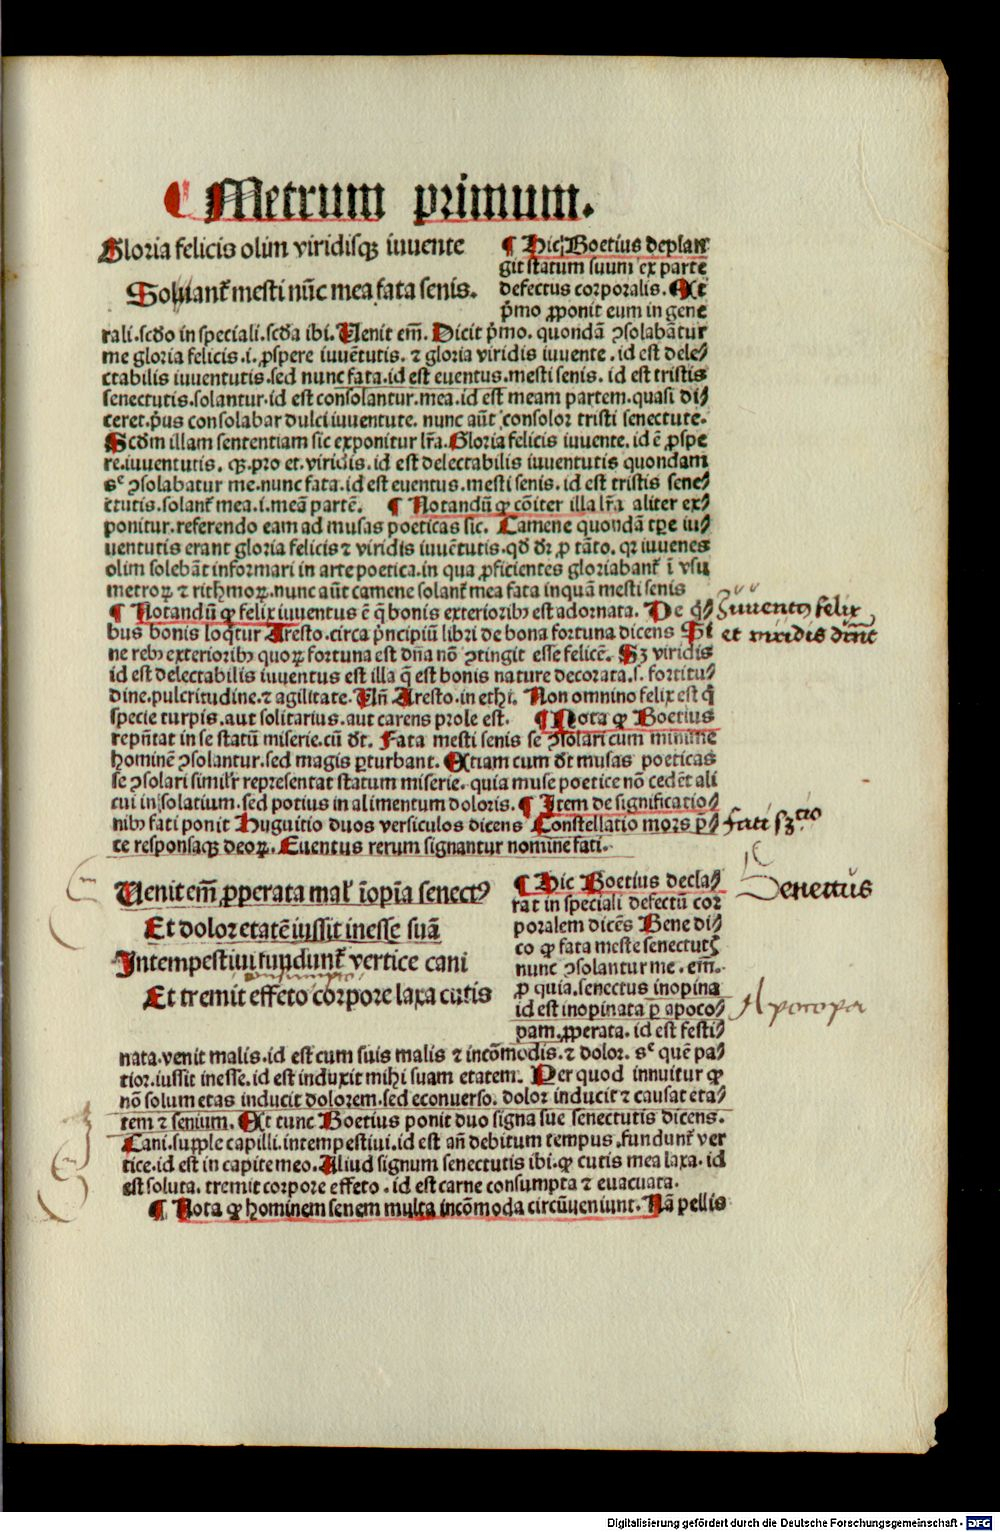 Metrum primum.
Gloria felicis olim viridisq; iuuente
Solant᷑ mesti nūc mea fata senis.
¶ Hic Boetius deplan
git statum suum ex parte
defectus corporalis. Et
p̄mo ꝓponit eum in gene
rali.scd̄o in speciali.scd̄a ibi. Uenit em̄. Dicit p̄mo. quondā ꝯsolabātur
me gloria felicis.i.ꝓspere iuuētutis. ⁊ gloria viridis iuuente.id est dele⸗
ctabilis iuuentutis.sed nunc fata.id est euentus.mesti senis. id est tristis
senectutis.solantur.id est consolantur.mea.id est meam partem.quasi di⸗
ceret.p̄us consolabar dulci iuuentute. nunc aūt consolor tristi senectute.
Scd̄m illam sententiam sic exponitur lr̄a. Gloria felicis iuuente. id ē ꝓspe
re.iuuentutis. q;.pro et.viridis.id est delectabilis iuuentutis quondam
sᶜ ꝯsolabatur me.nunc fata.id est euentus.mesti senis.id est tristis sene⸗
ctutis.solant᷑ mea.i.meā partē. ¶ Notandū ꝙ cōiter illa lr̄a aliter ex⸗
ponitur.referendo eam ad musas poeticas sic. Camene quondā tp̄e iu⸗
uentutis erant gloria felicis ⁊ viridis iuuētutis.qd̄ dr̄ ꝓ tāto. qꝛ iuuenes
olim solebāt informari in arte poetica.in qua ꝓficientes gloriabant᷑ ī vsu
metroꝝ ⁊ rithmoꝝ.nunc aūt camene solant᷑ mea fata inquā mesti senis
¶ Notandū ꝙ felix iuuentus ē q̄ bonis exteriorib; est adornata. De q̄⸗
bus bonis loqͥtur Aresto.circa p̄ncipiū libri de bona fortuna dicens Si
ne reb; exteriorib; quoꝝ fortuna est dn̄a nō ꝯtingit esse felicē. Sꝫ viridis
id est delectabilis iuuentus est illa q̄ est bonis nature decorata.s. fortitu⸗
dine.pulcritudine.⁊ agilitate. Un̄ Aresto.in ethi. Non omnino felix est q̄
specie turpis.aut solitarius.aut carens prole est. ¶ Nota ꝙ Boetius
repn̄tat in se statū miserie.cū d̄t. Fata mesti senis se ꝯsolari cum minime
hominē ꝯsolantur.sed magis ꝑturbant. Etiam cum d̄t musas poeticas
se ꝯsolari similr̄ representat statum miserie. quia muse poetice nō cedēt ali
cui in solatium.sed potius in alimentum doloris. ¶ Item de significatio⸗
nib; fati ponit Huguitio duos versiculos dicens Constellatio mors ꝑ⸗
te responsaq; deoꝝ. Euentus rerum signantur nomine fati.
Iuuentꝰ felix
et viridis din̄t
fati sꝫctio
Uenit em̄ ꝓperata malꝭ īopīa senectꝰ
Et dolor etatē iussit inesse suā
Intempestiui fundunt᷑ vertice cani
consumpto
Et tremit effeto corpore laxa cutis
¶ Hic Boetius decla⸗
rat in speciali defectū cor
poralem dicēs Bene di⸗
co ꝙ fata meste senectutꝭ
nunc ꝯsolantur me. em̄.
ꝓ quia.senectus inopina
id est inopinata ꝑ apoco⸗
pam.ꝓperata. id est festi⸗
Senectus
Apocopa
nata.venit malis.id est cum suis malis ⁊ incōmodis.⁊ dolor. sᶜ quē pa⸗
tior.iussit inesse.id est induxit mihi suam etatem. Per quod innuitur ꝙ
nō solum etas inducit dolorem.sed econuerso. dolor inducit ⁊ causat eta⸗
tem ⁊ senium. Et tunc Boetius ponit duo signa sue senectutis dicens.
Cani.supple capilli.intempestiui.id est an̄ debitum tempus.fundunt᷑ ver
tice.id est in capite meo. Aliud signum senectutis ibi.ꝙ cutis mea laxa. id
est soluta. tremit corpore effeto. id est carne consumpta ⁊ euacuata.
¶ Nota ꝙ hominem senem multa incōmoda circūueniunt. Nā pellis
Digitalisierung gefördert durch die Deutsche Forschungsgemeinschaft - DFG